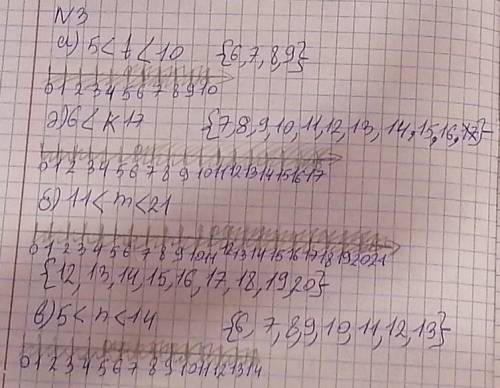 N3
а) 5 < t < 10 {6, 7, 8, 9}
0 1 2 3 4 5 6 7 8 9 10
д) 6 < к 17 {7, 8, 9, 10, 11, 12, 13, 14, 15, 16, 17}
0 1 2 3 4 5 6 7 8 9 10 11 12 13 14 15 16 17
б) 11 < m < 21
0 1 2 3 4 5 6 7 8 9 10 11 12 13 14 15 16 17 18 19 20 21
{12, 13, 14, 15, 16, 17, 18, 19, 20}
в) 5 < n < 14 {6, 7, 8, 9, 10, 11, 12, 13}
0 1 2 3 4 5 6 7 8 9 10 11 12 13 14